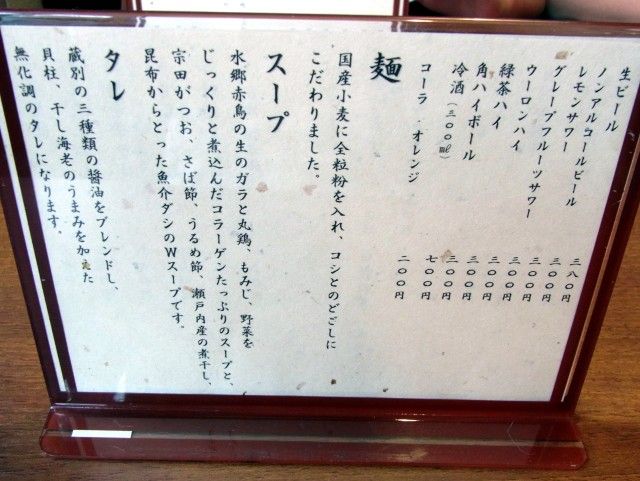 生ビール 三八〇円
ノンアルコールビール 三〇〇円
レモンサワー 三〇〇円
グレープフルーツサワー 三〇〇円
ウーロンハイ 三〇〇円
緑茶ハイ 三〇〇円
角ハイボール 三〇〇円
冷酒(三〇〇㎖) 七〇〇円
コーラ オレンジ 二〇〇円
麺
国産小麦に全粒粉を入れ、コシとのどごしに
こだわりました。
スープ
水郷赤鳥の生のガラと丸鶏、もみじ、野菜を
じっくりと煮込んだコラーゲンたっぷりのスープと、
宗田がつお、さば節、うるめ節、瀬戸内産の煮干し、
昆布からとった魚介ダシのWスープです。
タレ
蔵別の三種類の醤油をブレンドし、
貝柱、干し海老のうまみを加えた
無化調のタレになります。